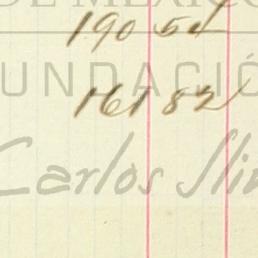 DE MÉXICO
190 52
FUNDACIÓ
161 82
Carlos Slim